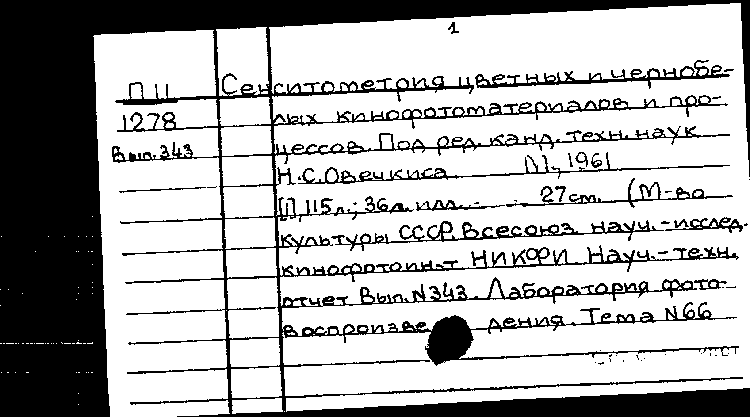 1
П 11 Сенситометрия цветных и чернобе-
1278 лых кинофотоматериалов и про-
Вып. 343 цессов. Под ред. канд. техн. наук
Н.С. Овечкиса. М., 1961
[1], 115 л.; 36 л. илл. 27 см. (М-во
культуры СССР. Всесоюз. науч.-исслед.
кинофотоин-т НИКФИ. Науч.-техн.
отчет Вып. N 343. Лаборатория фото-
воспроизведения. Тема N 66